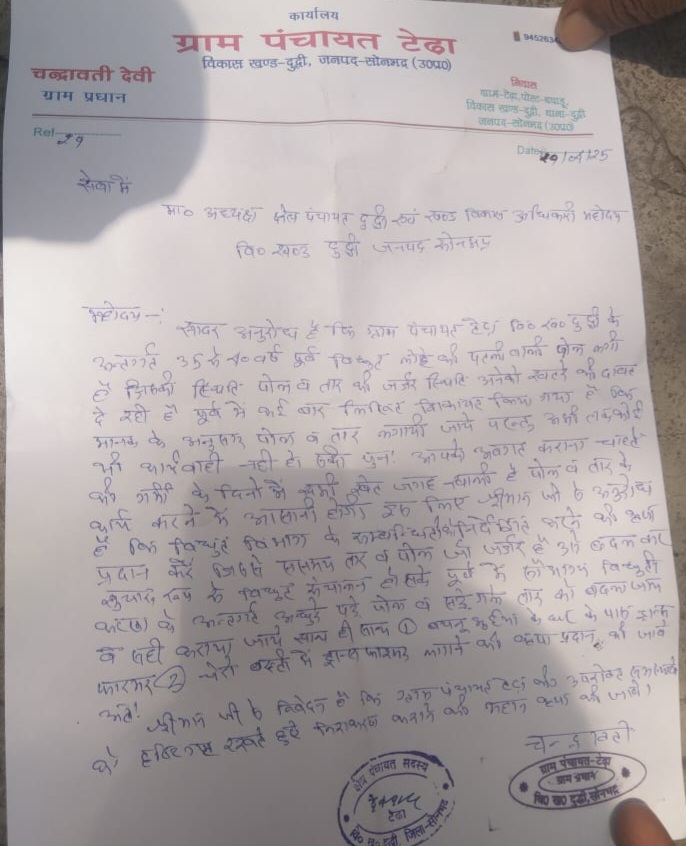 कार्यालय
ग्राम पंचायत टेढा
विकास खण्ड-दुद्धी, जनपद-सोनभद्र (उ०प्र०)
9452634
चन्द्रावती देवी
ग्राम प्रधान
निवास
ग्राम-टेढा, पोस्ट-बघाडू,
विकास खण्ड-दुद्धी, थाना-दुद्धी
जनपद-सोनभद्र (उ०प्र०)
Ref 29
Date
सेवा में
मा० अध्यक्ष क्षेत्र पंचायत दुद्धी एवं खण्ड विकास अधिकारी महोदय
वि० खण्ड दुद्धी जनपद सोनभद्र
महोदय -:
सादर अनुरोध है कि ग्राम पंचायत टेढा वि० ख० दुद्धी के
अन्तर्गत 35 से 40 वर्ष पूर्व विद्युत लोहे की पतली वाली पोल लगी
है जिसकी स्थिति पोल व तार की जर्जर स्थिति अनेको खतरे की दावत
दे रही है पूर्व में कई बार लिखित शिकायत किया गया है कि
मानक के अनुसार पोल व तार लगायी जाये परन्तु अभी तक कोई
भी कार्यवाही नही हो सकी पुनः आपको अवगत कराना चाहते
की गर्मी के दिनों में सभी खेत जगह खाली है पोल व तार के
कार्य करने में आसानी होगी इस लिए श्रीमान जी से अनुरोध
है कि विद्युत विभाग के सम्बन्धित को निर्देशित करने की कृपा
प्रदान करें जिससे ससमय तार व पोल जो जर्जर है उसे बदल कर
सुचारु रूप से विद्युत संचालन हो सके पूर्व में सौभाग्य विद्युती
के अन्तर्गत अधुरे पड़े पोल व सड़े गले तार को बदला जाय
व सही कराया जाये साथ ही साथ ① के घर के पास ट्रान्स
फारमर ② चेरो बस्ती में ट्रान्सफारमर लगाने की कृपा प्रदान की जावे
अतः श्रीमान जी से निवेदन है कि ग्राम पंचायत टेढा की उपरोक्त समस्याओं
को दृष्टिगत रखते हुये निराकरण कराने की महान कृपा की जावे।
चन्द्रावती
क्षेत्र पंचायत सदस्य
टेढा
वि० ख० दुद्धी, जिला-सोनभद्र
ग्राम पंचायत-टेढा
ग्राम प्रधान
वि० ख० दुद्धी, सोनभद्र